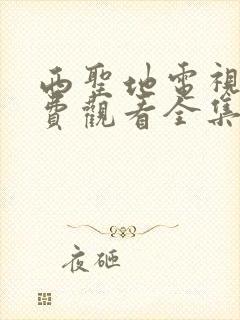 西聖地電視
費觀看全集
夜砸